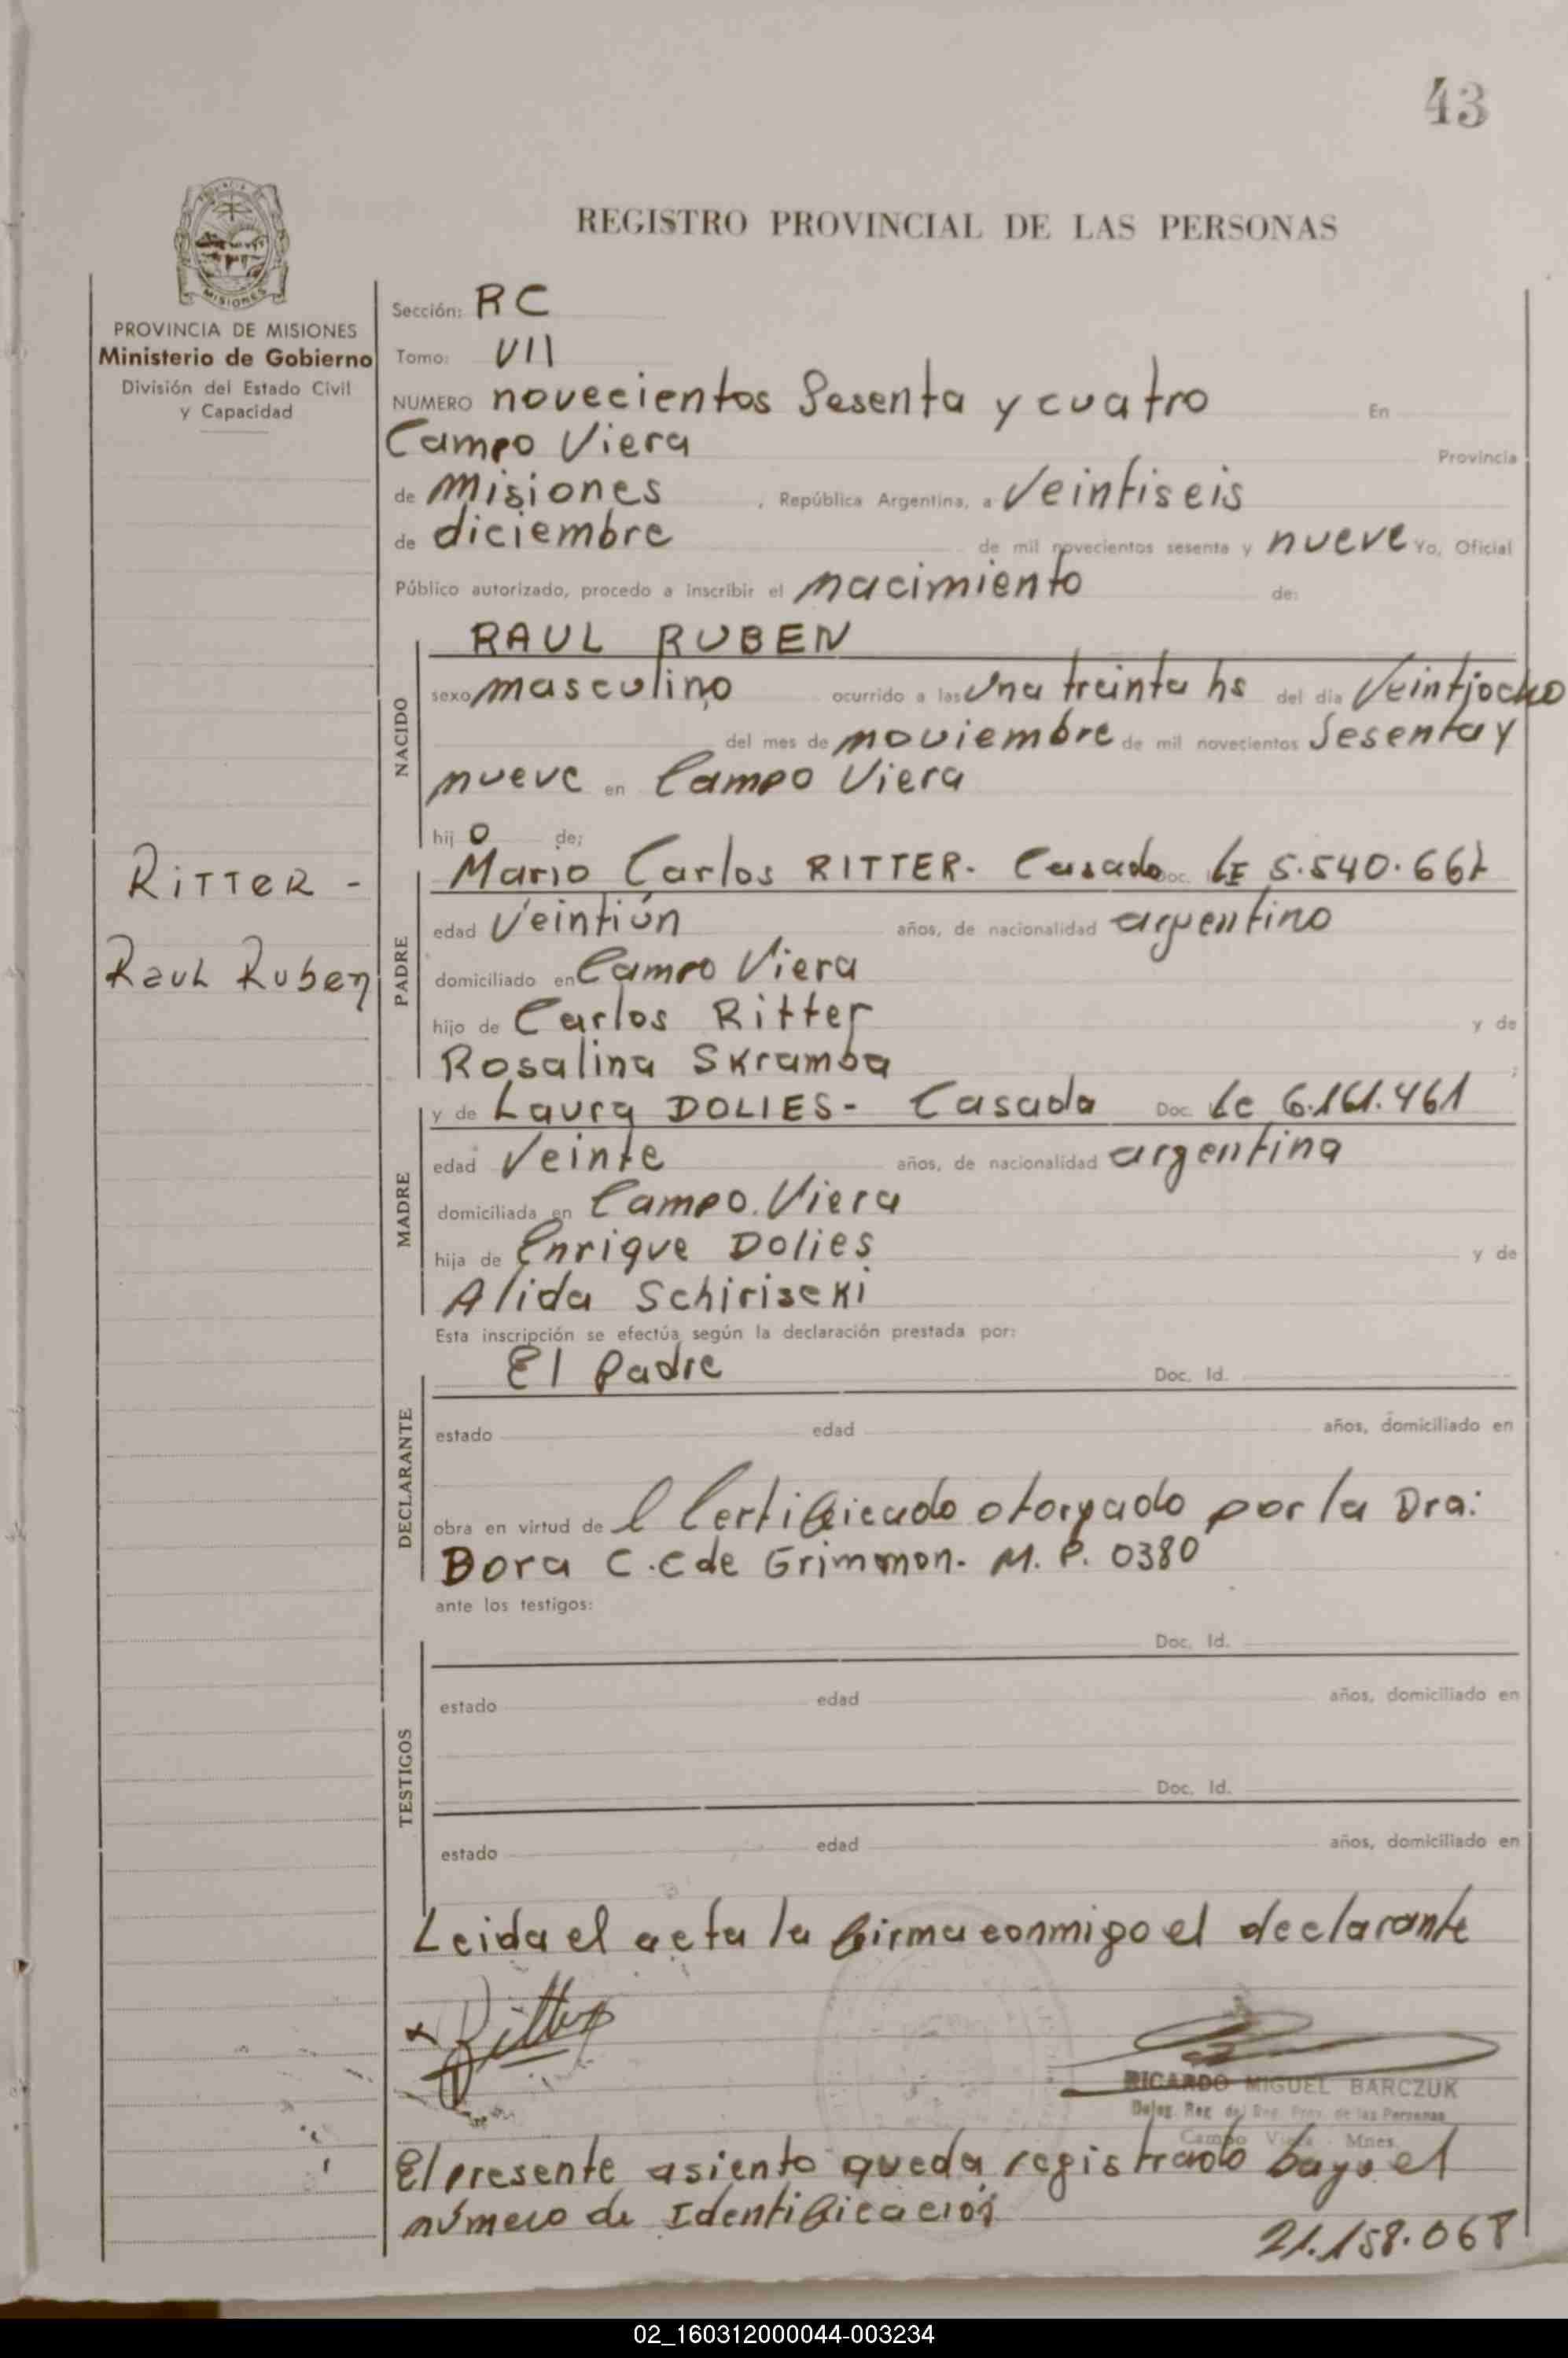 43
REGISTRO PROVINCIAL DE LAS PERSONAS
MISIONES
PROVINCIA DE MISIONES
Ministerio de Gobierno
División del Estado Civil
y Capacidad
Sección: RC
Tomo: VII
NUMERO novecientos Sesenta y cuatro En
Campo Viera Provincia
de Misiones , República Argentina, a Veintiseis
de diciembre de mil novecientos sesenta y nueve Yo, Oficial
Público autorizado, procedo a inscribir el nacimiento de:
NACIDO
RAUL RUBEN
sexo masculino ocurrido a las Una treinta hs del día Veintiocho
del mes de noviembre de mil novecientos Sesenta y
nueve en Campo Viera
hij o de:
RITTER -
Raul Ruben
PADRE
Mario Carlos RITTER. Casado Doc. LE 5.540.667
edad Veintiún años, de nacionalidad argentino
domiciliado en Campo Viera
hijo de Carlos Ritter y de
Rosalina Skramba
MADRE
y de Laura DOLIES - Casada Doc. Lc 6.161.461
edad Veinte años, de nacionalidad argentina
domiciliada en Campo. Viera
hija de Enrique Dolies y de
Alida Schiriseki
Esta inscripción se efectúa según la declaración prestada por:
DECLARANTE
El Padre Doc. Id.
estado edad años, domiciliado en
obra en virtud de l Certificado otorgado por la Dra:
Dora C. C de Grimmon. M. P. 0380
ante los testigos:
TESTIGOS
Doc. Id.
estado edad años, domiciliado en
Doc. Id.
estado edad años, domiciliado en
Leida el acta la firma conmigo el declarante
x Ritter
RICARDO MIGUEL BARCZUK
Deleg. Reg. del Reg. Prov. de las Personas
Campo Viera - Mnes.
El presente asiento queda registrado bayo el
número de Identificación
21.158.068
02_160312000044-003234